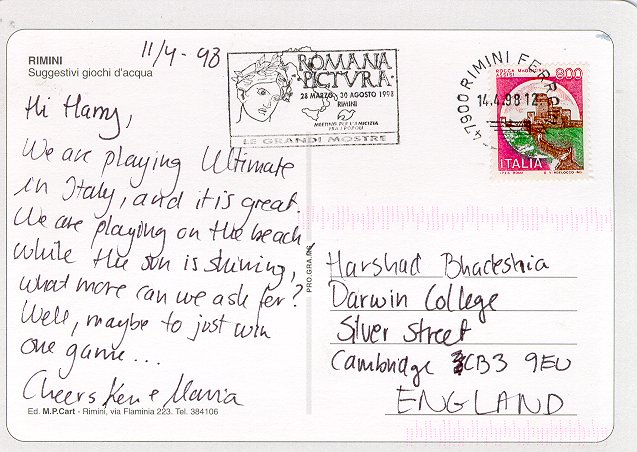 RIMINI
Suggestivi giochi d'acqua
11/4 - 98
Hi Harry,
We are playing Ultimate
in Italy, and it is great.
We are playing on the beach
while the son is shining,
what more can we ask for?
Well, maybe to just win
one game...
Cheers Ken e Maria
Ed. M.P.Cart - Rimini, via Flaminia 223. Tel. 384106
ROMANA
PICTURA
28 MARZO 30 AGOSTO 1998
RIMINI
MEETING PER L'AMICIZIA
FRA I POPOLI
LE GRANDI MOSTRE
47900 RIMINI FERR
14.4.98 12
ROCCA MAGGIORE
ASSISI
800
ITALIA
PRO.GRA.MS
Harshad Bhadeshia
Darwin College
Silver Street
Cambridge CB3 9EU
ENGLAND